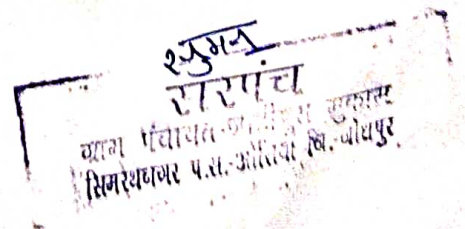 सुमन
सरपंच
ग्राम पंचायत
सिमरथनगर प.स.-ओसियाँ जि.-जोधपुर